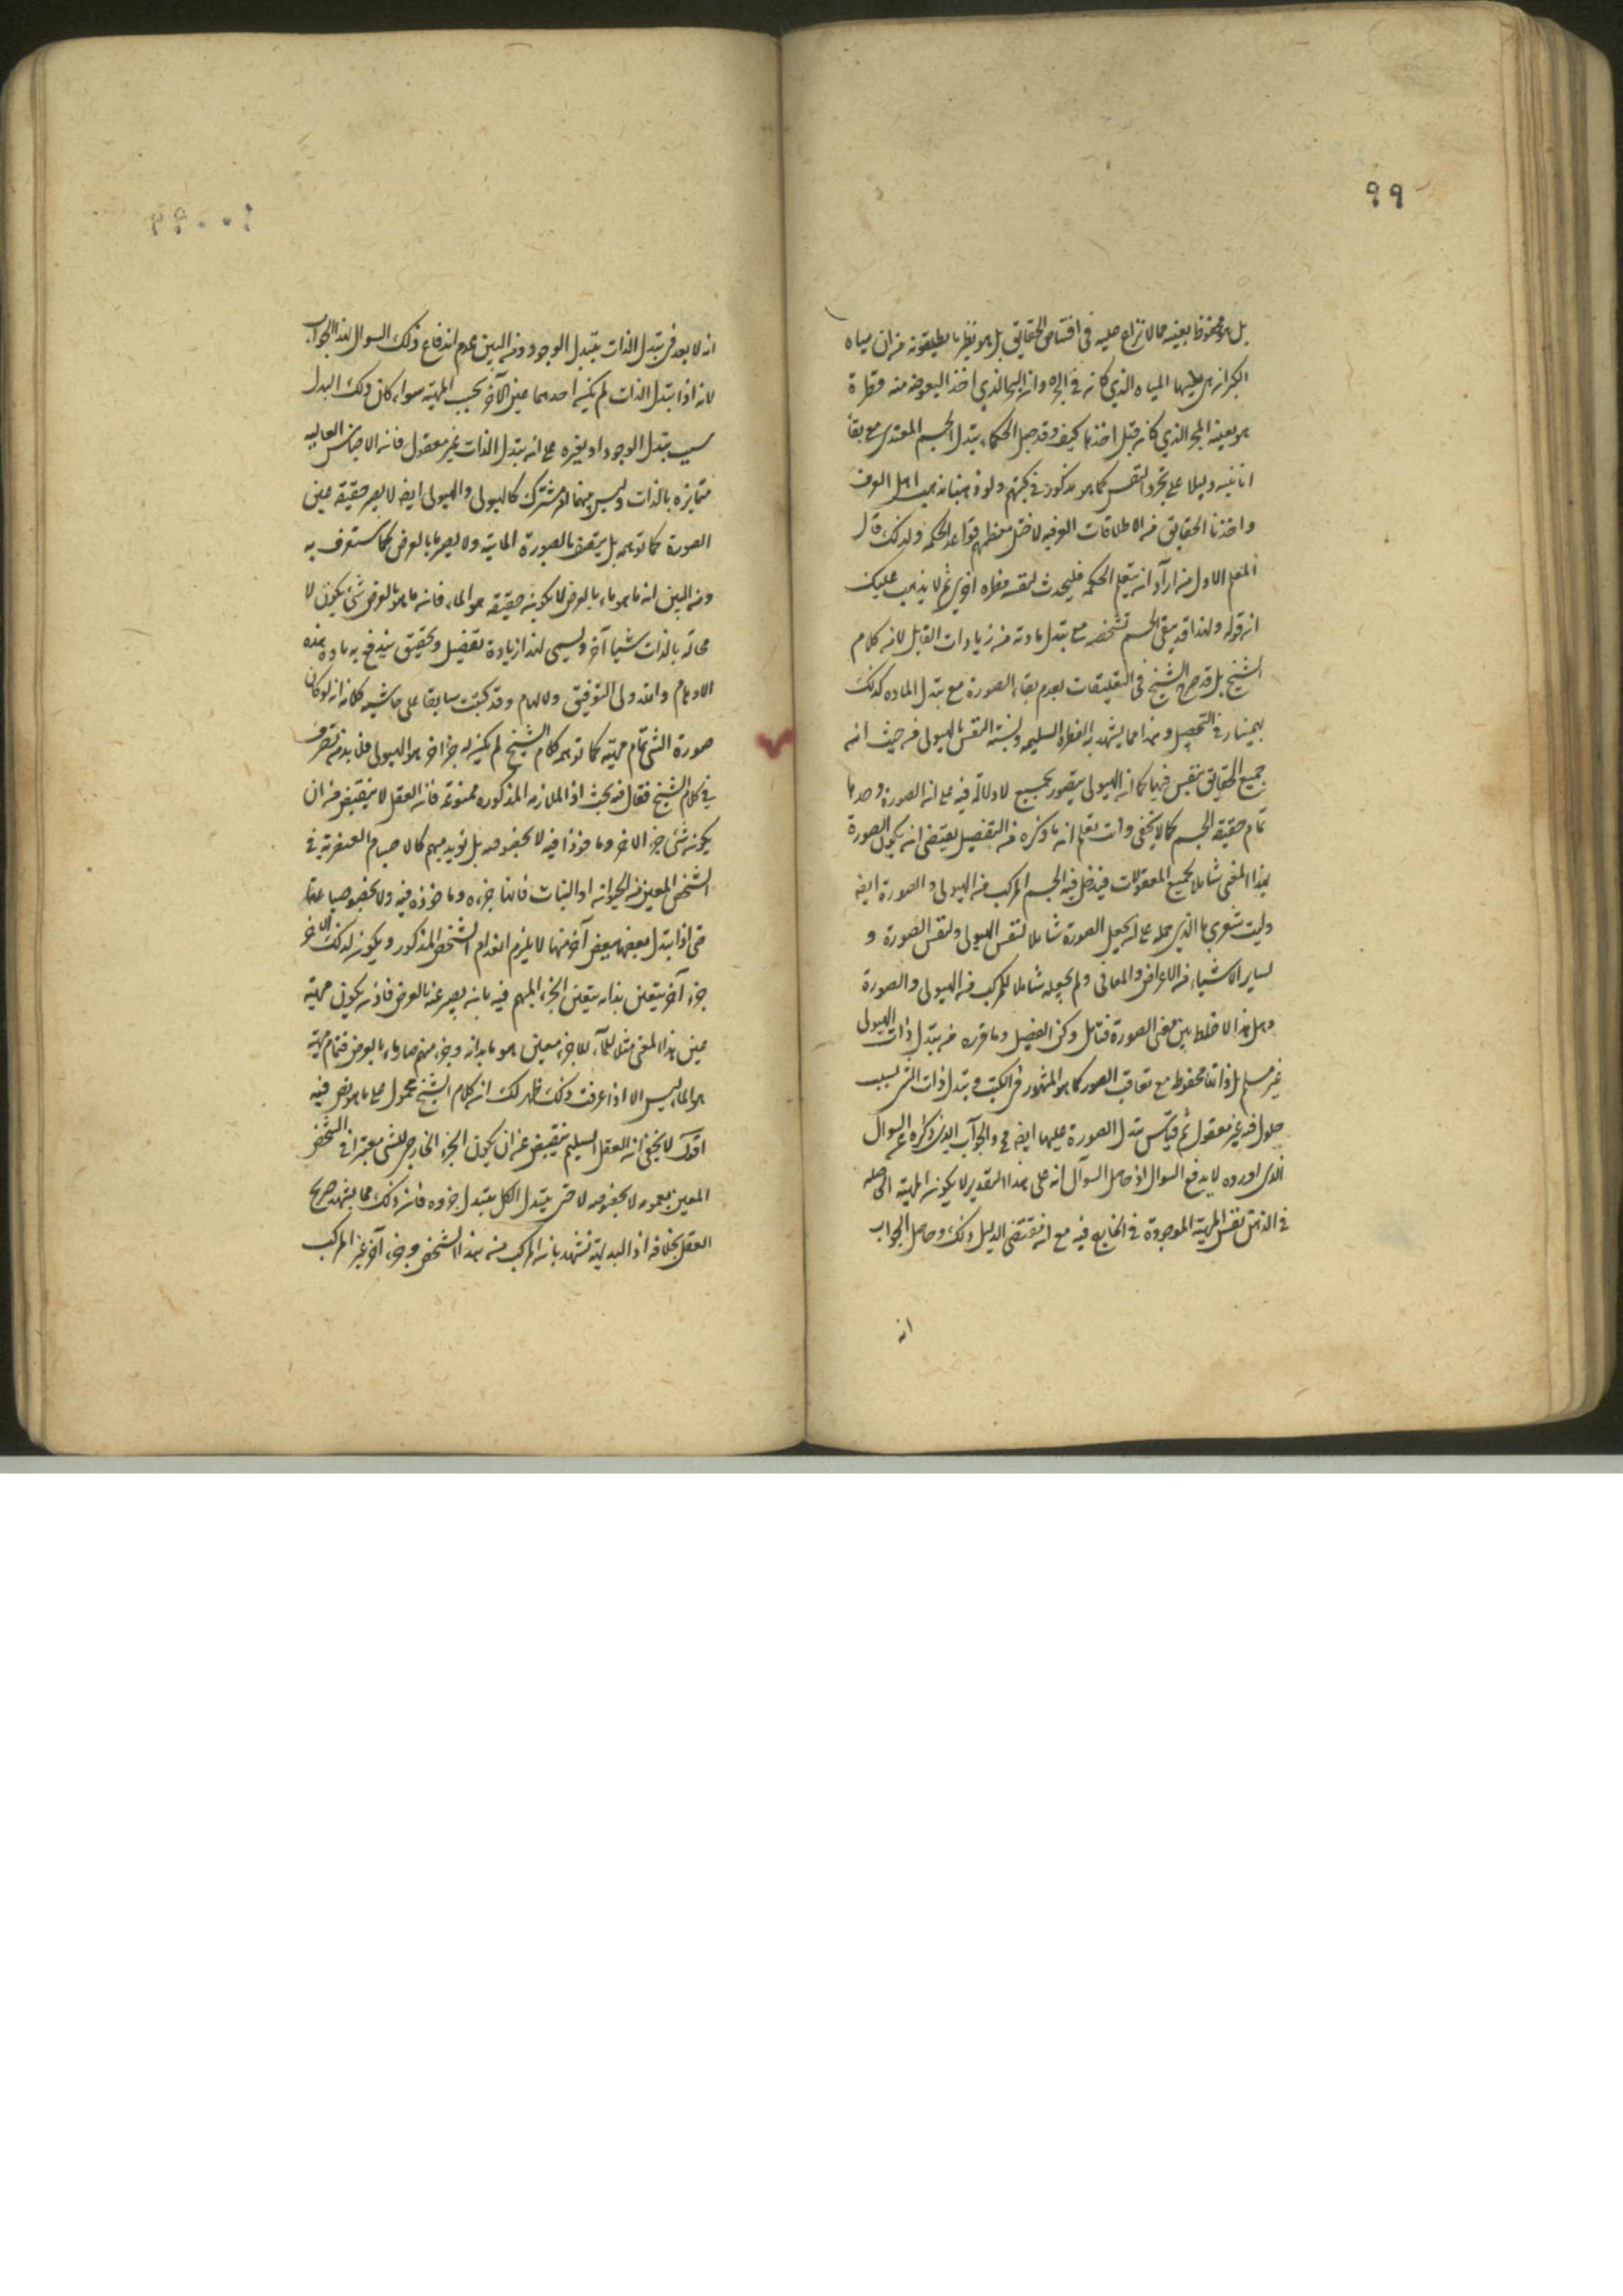 ٩٩
بل هو محفوظ بعينه مما لا نزاع عليه فى اقتناص الحقايق بل هو نظير ما يطلقونه من ان مياه
هو بعينه البحر الذي كان قبل اخذها كيف وقد جعل الحكماء تبدل الجسم المغتدى مع بقاء
انانيته دليلا على تجرد النفس كما هو مذكور فى كتبهم ولو ذهبنا مذهب اهل العرف
واخذنا الحقايق من الاطلاقات العرفيه لاختل معظم قواعد الحكمه ولذلك قال
المعلم الاول من اراد ان يتعلم الحكمه فليحدث لنفسه فطره اخرى ثم لا يذهب عليك
ان قوله ولهذا قد يبقى الجسم تشخصه مع تبدل مادته من زيادات القابل لانه كلام
الشيخ بل قد صرح الشيخ فى التعليقات بعدم بقاء الصورة مع تبدل الماده كذلك
بهمنيار فى التحصيل وهذا مما يشهد به الفطره السليمه ونسبة النفس بالهيولى من حيث انه
جميع الحقايق ينتقش فيها كما ان الهيولى يتصور بجميع لا دلالة فيه على ان الصورة وحدها
تمام حقيقة الجسم كما لا يخفى وانت تعلم ان ما ذكره من التفصيل يقتضى ان يكون الصورة
بهذا المعنى شاملا لجميع المعقولات فيدخل فيه الجسم المركب من الهيولى والصورة ايضا
وليت شعري ما الذي حمله على ان يجعل الصورة شاملا لنفس الهيولى ولنفس الصورة و
لساير الاشياء من الاعراض والمعانى ولم يجعله شاملا للمركب من الهيولى والصورة
وهل هذا الا خلط بين معنى الصورة فتامل وكن الفيصل وما قرره من تبدل ذات الهيولى
غير مسلم بل ذاتها محفوظ مع تعاقب الصور كما هو المشهور فى الكتب وتبدل ذات الشى بسبب
حلول فيه غير معقول ثم قياس تبدل الصورة عليها ايضا فى والجواب الذى ذكره عن السوال
الذى اورده لا يدفع السوال اذ حاصل السوال انه على هذا التقدير لا يكون المهية الحاصله
فى الذهن نفس المهية الموجودة فى الخارج فيه مع ان مقتضى الدليل ذلك وحاصل الجواب
انه
انه لا بعد فى تبدل الذات بتبدل الوجود ومن البين عدم اندفاع ذلك السوال بهذا الجواب
لانه اذا تبدل الذات لم يكن احدهما عين الآخر بحسب المهية سواء كان ذلك البدل
بسبب تبدل الوجود او بغيره على ان تبدل الذات غير معقول فان الاجناس العاليه
متمايزه بالذات وليس بينها امر مشترك كالهيولى والهيولى ايضا لا يصير حقيقة عين
الصورة كما توهمه بل يتصف بالصورة المائية ولا يصير ماء بالعرض كما ستعرف به
ومن البين ان ما هو ماء بالعرض لا يكون حقيقة هو الماء فان ما هو بالعرض شئ يكون لا
محالة بالذات شيئا آخر وليس لهذا زيادة تفصيل وتحقيق يندفع به مادة هذه
الاوهام والله ولى التوفيق والالهام وقد كتبت سابقا على حاشيه كلامه انه لو كان
صورة الشى تمام مهيته كما توهمه كلام الشيخ لم يكن له جزء اخر هو الهيولى فلا بد من تصرف
فى كلام الشيخ فقال فيه بحث اذ الملازمه المذكوره ممنوعه فان العقل لا ينقبض من ان
يكون شئ جزء الاخر وماخوذا فيه لا بخصوصه بل بوجه مبهم كالاجسام العنصرية فى
الشخص المعين من الحيوان او النبات فانها جزءه وماخوذه فيه ولا بخصوصياتها
حتى اذا تبدل بعضها ببعض آخر منها لا يلزم انعدام الشخص المذكور ويكون لذلك الاخر
جزء آخر يتعين بذاته يتعين الجزء المبهم فيه بانه يصير عنه بالعرض فاذن يكون مهيته
عين هذا المعنى مثلا للماء اجزء معين هو ما بذاته وجزء مبهم صار ماء بالعرض فتمام مهيته
هو الماء ليس الا اذا عرفت ذلك ظهر لك ان كلام الشيخ محمول على ما هو نص فيه
اقول لا يخفى ان العقل السليم ينقبض عن ان يكون الجزء الخارجى للشى معتبرا فى الشخص
المعين بعمومه لا بخصوصه لا حتى يتبدل الكل بتبدل جزوه فان ذلك مما يشهد صريح
العقل بخلافه اذ البديهة تشهد بان المركب من هذا الشخص وجزء آخر غير المركب